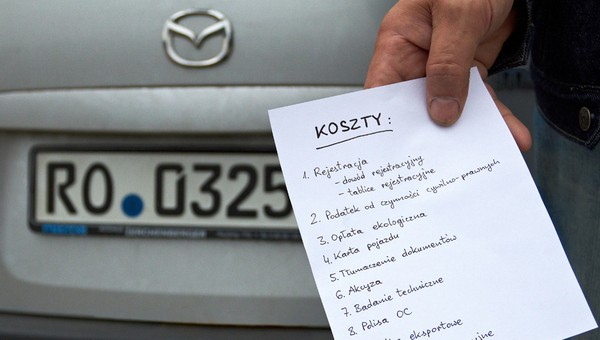 RO 0325
KOSZTY:
1. Rejestracja
- dowód rejestracyjny
- tablice rejestracyjne
2. Podatek od czynności cywilno-prawnych
3. Opłata ekologiczna
4. Karta pojazdu
5. Tłumaczenie dokumentów
6. Akcyza
7. Badanie techniczne
8. Polisa OC
eksportowe